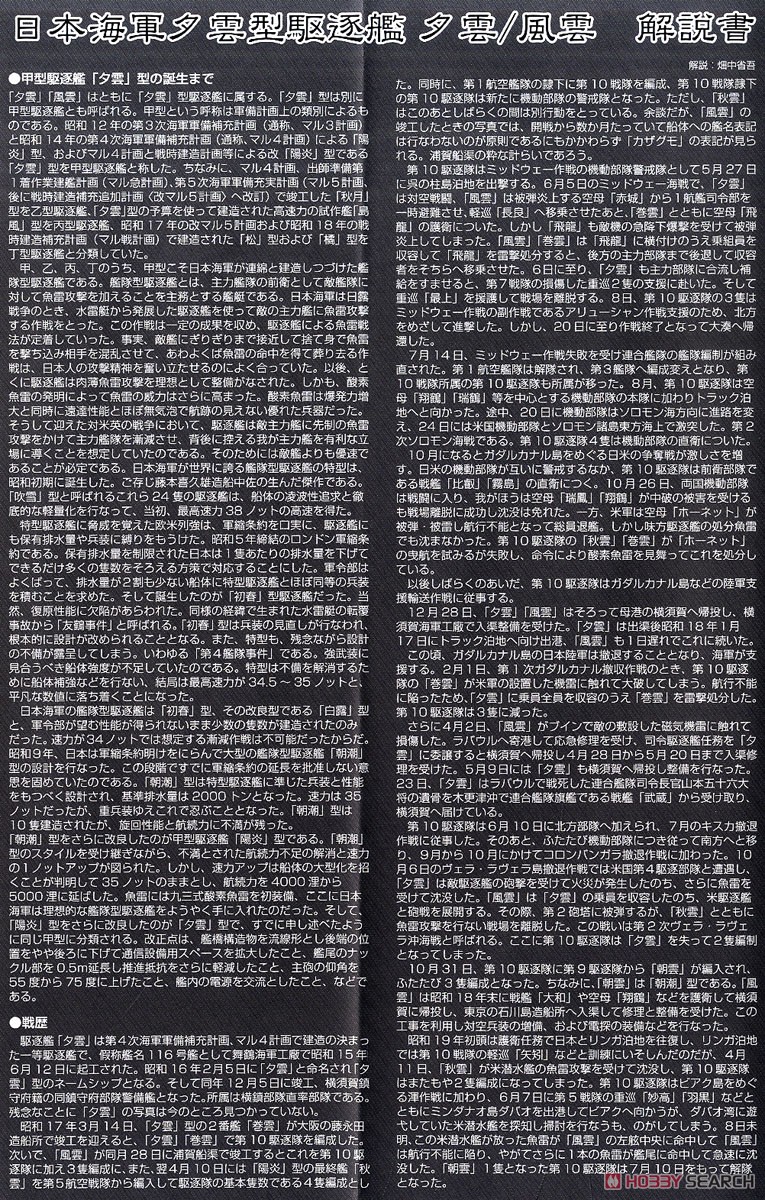 日本海軍夕雲型駆逐艦 夕雲/風雲　解説書
解説：畑中省吾
●甲型駆逐艦「夕雲」型の誕生まで
「夕雲」「風雲」はともに「夕雲」型駆逐艦に属する。「夕雲」型は別に
甲型駆逐艦とも呼ばれる。甲型という呼称は軍備計画上の類別によるも
のである。昭和12年の第3次海軍軍備補充計画（通称、マル3計画）
と昭和14年の第4次海軍軍備補充計画（通称、マル4計画）による「陽
炎」型、およびマル4計画と戦時建造計画等による改「陽炎」型である
「夕雲」型を甲型駆逐艦と称した。ちなみに、マル4計画、出師準備第
1着作業建艦計画（マル急計画）、第5次海軍軍備充実計画（マル5計画、
後に戦時建造補充追加計画〈改マル5計画〉へ改訂）で竣工した「秋月」
型を乙型駆逐艦、「夕雲」型の予算を使って建造された高速力の試作艦「島
風」型を丙型駆逐艦、昭和17年の改マル5計画および昭和18年の戦
時建造補充計画（マル戦計画）で建造された「松」型および「橘」型を
丁型駆逐艦と分類していた。
　甲、乙、丙、丁のうち、甲型こそ日本海軍が連綿と建造しつづけた艦
隊型駆逐艦である。艦隊型駆逐艦とは、主力艦隊の前衛として敵艦隊に
対して魚雷攻撃を加えることを主務とする艦艇である。日本海軍は日露
戦争のとき、水雷艇から発展した駆逐艦を使って敵の主力艦に魚雷攻撃
する作戦をとった。この作戦は一定の成果を収め、駆逐艦による魚雷戦
法が定着していった。事実、敵艦にぎりぎりまで接近して捨て身で魚雷
を撃ち込み相手を混乱させて、あわよくば魚雷の命中を得て葬り去る作
戦は、日本人の攻撃精神を奮い立たせるのによく合っていた。以後、と
くに駆逐艦は肉薄魚雷攻撃を理想として整備がなされた。しかも、酸素
魚雷の発明によって魚雷の威力はさらに高まった。酸素魚雷は爆発力増
大と同時に遠達性能とほぼ無気泡で航跡の見えない優れた兵器だった。
そうして迎えた対米英の戦争において、駆逐艦は敵主力艦に先制の魚雷
攻撃をかけて主力艦隊を漸減させ、背後に控える我が主力艦を有利な立
場に導くことを想定していたのである。そのためには敵艦よりも優速で
あることが必定である。日本海軍が世界に誇る艦隊型駆逐艦の特型は、
昭和初期に誕生した。ご存じ藤本喜久雄造船中佐の生んだ傑作である。
「吹雪」型と呼ばれるこれら24隻の駆逐艦は、船体の凌波性追求と徹
底的な軽量化を行なって、当初、最高速力38ノットの高速を得た。
　特型駆逐艦に脅威を覚えた欧米列強は、軍縮条約を口実に、駆逐艦に
も保有排水量や兵装に縛りをもうけた。昭和5年締結のロンドン軍縮条
約である。保有排水量を制限された日本は1隻あたりの排水量を下げて
できるだけ多くの隻数をそろえる方策で対応することにした。軍令部は
よくばって、排水量が2割も少ない船体に特型駆逐艦とほぼ同等の兵装
を積むことを求めた。そして誕生したのが「初春」型駆逐艦だった。当
然、復原性能に欠陥があらわれた。同様の経緯で生まれた水雷艇の転覆
事故から「友鶴事件」と呼ばれる。「初春」型は兵装の見直しが行なわれ、
根本的に設計が改められることとなる。また、特型も、残念ながら設計
の不備が露呈してしまう。いわゆる「第4艦隊事件」である。強武装に
見合うべき船体強度が不足していたのである。特型は不備を解消するた
めに船体補強などを行ない、結局は最高速力が34.5～35ノットと、
平凡な数値に落ち着くことになった。
　日本海軍の艦隊型駆逐艦は「初春」型、その改良型である「白露」型
と、軍令部が望む性能が得られないまま少数の隻数が建造されたのみ
だった。速力が34ノットでは想定する漸減作戦は不可能だったからだ。
昭和9年、日本は軍縮条約明けをにらんで大型の艦隊型駆逐艦「朝潮」
型の設計を行なった。この段階ですでに軍縮条約の延長を批准しない意
思を固めていたのである。「朝潮」型は特型駆逐艦に準じた兵装と性能
をもつべく設計され、基準排水量は2000トンとなった。速力は35
ノットだったが、重兵装ゆえこれで忍ぶこととなった。「朝潮」型は
10隻建造されたが、旋回性能と航続力に不満が残った。
「朝潮」型をさらに改良したのが甲型駆逐艦「陽炎」型である。「朝潮」
型のスタイルを受け継ぎながら、不満とされた航続力不足の解消と速力
の1ノットアップが図られた。しかし、速力アップは船体の大型化を招
くことが判明して35ノットのままとし、航続力を4000浬から
5000浬に延ばした。魚雷には九三式酸素魚雷を初装備、ここに日本
海軍は理想的な艦隊型駆逐艦をようやく手に入れたのだった。そして、
「陽炎」型をさらに改良したのが「夕雲」型で、すでに申し述べたよう
に同じ甲型に分類される。改正点は、艦橋構造物を流線形とし後端の位
置をやや後ろに下げて通信設備用スペースを拡大したこと、艦尾のナッ
クル部を0.5m延長し推進抵抗をさらに軽減したこと、主砲の仰角を
55度から75度に上げたこと、艦内の電源を交流としたこと、などで
ある。
●戦歴
　駆逐艦「夕雲」は第4次海軍軍備補充計画、マル4計画で建造の決まっ
た一等駆逐艦で、仮称艦名116号艦として舞鶴海軍工廠で昭和15年
6月12日に起工された。昭和16年2月5日に「夕雲」と命名され「夕
雲」型のネームシップとなる。そして同年12月5日に竣工、横須賀鎮
守府籍の同鎮守府部隊警備艦となった。所属は横鎮部隊直率部隊である。
残念なことに「夕雲」の写真は今のところ見つかっていない。
　昭和17年3月14日、「夕雲」型の2番艦「巻雲」が大阪の藤永田
造船所で竣工を迎えると、「夕雲」「巻雲」で第10駆逐隊を編成した。
次いで、「風雲」が同月28日に浦賀船渠で竣工するとこれを第10駆
逐隊に加え3隻編成に、また、翌4月10日には「陽炎」型の最終艦「秋
雲」を第5航空戦隊から編入して駆逐隊の基本隻数である4隻編成とし
た。同時に、第1航空艦隊の隷下に第10戦隊を編成、第10戦隊隷下
の第10駆逐隊は新たに機動部隊の警戒隊となった。ただし、「秋雲」
はこのあとしばらくの間は別行動をとっている。余談だが、「風雲」の
竣工したときの写真では、開戦から数か月たっていて船体への艦名表記
は行なわないのが原則であるにもかかわらず「カザグモ」の表記が見ら
れる。浦賀船渠の粋な計らいであろう。
　第10駆逐隊はミッドウェー作戦の機動部隊警戒隊として5月27日
に呉の柱島泊地を出撃する。6月5日のミッドウェー海戦で、「夕雲」
は対空戦闘、「風雲」は被弾炎上する空母「赤城」から1航艦司令部を
一時避難させ、軽巡「長良」へ移乗させたあと、「巻雲」とともに空母「飛
龍」の護衛についた。しかし「飛龍」も敵機の急降下爆撃を受けて被弾
炎上してしまった。「風雲」「巻雲」は「飛龍」に横付けのうえ乗組員を
収容して「飛龍」を雷撃処分すると、後方の主力部隊まで後退して収容
者をそちらへ移乗させた。6日に至り、「夕雲」も主力部隊に合流し補
給をすませると、第7戦隊の損傷した重巡2隻の支援に赴いた。そして
重巡「最上」を援護して戦場を離脱する。8日、第10駆逐隊の3隻は
ミッドウェー作戦の副作戦であるアリューシャン作戦支援のため、北方
をめざして進撃した。しかし、20日に至り作戦終了となって大湊へ帰
還した。
　7月14日、ミッドウェー作戦失敗を受け連合艦隊の艦隊編制が組み
直された。第1航空艦隊は解隊され、第3艦隊へ編成変えとなり、第
10戦隊所属の第10駆逐隊も所属が移った。8月、第10駆逐隊は空
母「翔鶴」「瑞鶴」等を中心とする機動部隊の本隊に加わりトラック泊
地へと向かった。途中、20日に機動部隊はソロモン海方向に進路を変
え、24日には米国機動部隊とソロモン諸島東方海上で激突した。第2
次ソロモン海戦である。第10駆逐隊4隻は機動部隊の直衛についた。
　10月になるとガダルカナル島をめぐる日米の争奪戦が激しさを増
す。日米の機動部隊が互いに警戒するなか、第10駆逐隊は前衛部隊で
ある戦艦「比叡」「霧島」の直衛につく。10月26日、両国機動部隊
は戦闘に入り、我がほうは空母「瑞鳳」「翔鶴」が中破の被害を受ける
も戦場離脱に成功し沈没は免れた。一方、米軍は空母「ホーネット」が
被弾・被雷し航行不能となって総員退艦。しかし味方駆逐艦の処分魚雷
でも沈まなかった。第10駆逐隊の「秋雲」「巻雲」が「ホーネット」
の曳航を試みるが失敗し、命令により酸素魚雷を見舞ってこれを処分し
ている。
　以後しばらくのあいだ、第10駆逐隊はガダルカナル島などの陸軍支
援輸送作戦に従事する。
　12月28日、「夕雲」「風雲」はそろって母港の横須賀へ帰投し、横
須賀海軍工廠で入渠整備を受けた。「夕雲」は出渠後昭和18年1月
17日にトラック泊地へ向け出港、「風雲」も1日遅れでこれに続いた。
　この頃、ガダルカナル島の日本陸軍は撤退することとなり、海軍が支
援する。2月1日、第1次ガダルカナル撤収作戦のとき、第10駆逐
隊の「巻雲」が米軍の設置した機雷に触れて大破してしまう。航行不能
に陥ったため、「夕雲」に乗員全員を収容のうえ「巻雲」を雷撃処分した。
第10駆逐隊は3隻に減った。
　さらに4月2日、「風雲」がブインで敵の敷設した磁気機雷に触れて
損傷した。ラバウルへ寄港して応急修理を受け、司令駆逐艦任務を「夕
雲」に委譲すると横須賀へ帰投し4月28日から5月20日まで入渠修
理を受けた。5月9日には「夕雲」も横須賀へ帰投し整備を行なった。
23日、「夕雲」はラバウルで戦死した連合艦隊司令長官山本五十六大
将の遺骨を木更津沖で連合艦隊旗艦である戦艦「武蔵」から受け取り、
横須賀へ届けている。
　第10駆逐隊は6月10日に北方部隊へ加えられ、7月のキスカ撤退
作戦に従事した。そのあと、ふたたび機動部隊につき従って南方へと移
り、9月から10月にかけてコロンバンガラ撤退作戦に加わった。10
月6日のヴェラ・ラヴェラ島撤退作戦では米国第4駆逐隊と遭遇し、
「夕雲」は敵駆逐艦の砲撃を受けて火災が発生したのち、さらに魚雷を
受けて沈没した。「風雲」は「夕雲」の乗員を収容したのち、米駆逐艦
と砲戦を展開する。その際、第2砲塔に被弾するが、「秋雲」とともに
魚雷攻撃を行ない戦場を離脱した。この戦いは第2次ヴェラ・ラヴェ
ラ沖海戦と呼ばれる。ここに第10駆逐隊は「夕雲」を失って2隻編制
となってしまった。
　10月31日、第10駆逐隊に第9駆逐隊から「朝雲」が編入され、
ふたたび3隻編成となった。ちなみに、「朝雲」は「朝潮」型である。「風
雲」は昭和18年末に戦艦「大和」や空母「翔鶴」などを護衛して横須
賀に帰投し、東京の石川島造船所へ入渠して修理と整備を受けた。この
工事を利用し対空兵装の増備、および電探の装備などを行なった。
　昭和19年初頭は護衛任務で日本とリンガ泊地を往復し、リンガ泊地
では第10戦隊の軽巡「矢矧」などと訓練にいそしんだのだが、4月
11日、「秋雲」が米潜水艦の魚雷攻撃を受けて沈没し、第10駆逐隊
はまたもや2隻編成になってしまった。第10駆逐隊はビアク島をめぐ
る渾作戦に加わり、6月7日に第5戦隊の重巡「妙高」「羽黒」などと
ともにミンダナオ島ダバオを出港してビアクへ向かうが、ダバオ湾に遊
弋していた米潜水艦を探知し掃討を行なうも、のがしてしまう。8日未
明、この米潜水艦が放った魚雷が「風雲」の左舷中央に命中して「風雲」
は航行不能に陥り、やがてさらに1本の魚雷が艦尾に命中して急速に沈
没した。「朝雲」1隻となった第10駆逐隊は7月10日をもって解隊
となった。
HOBBY SEARCH